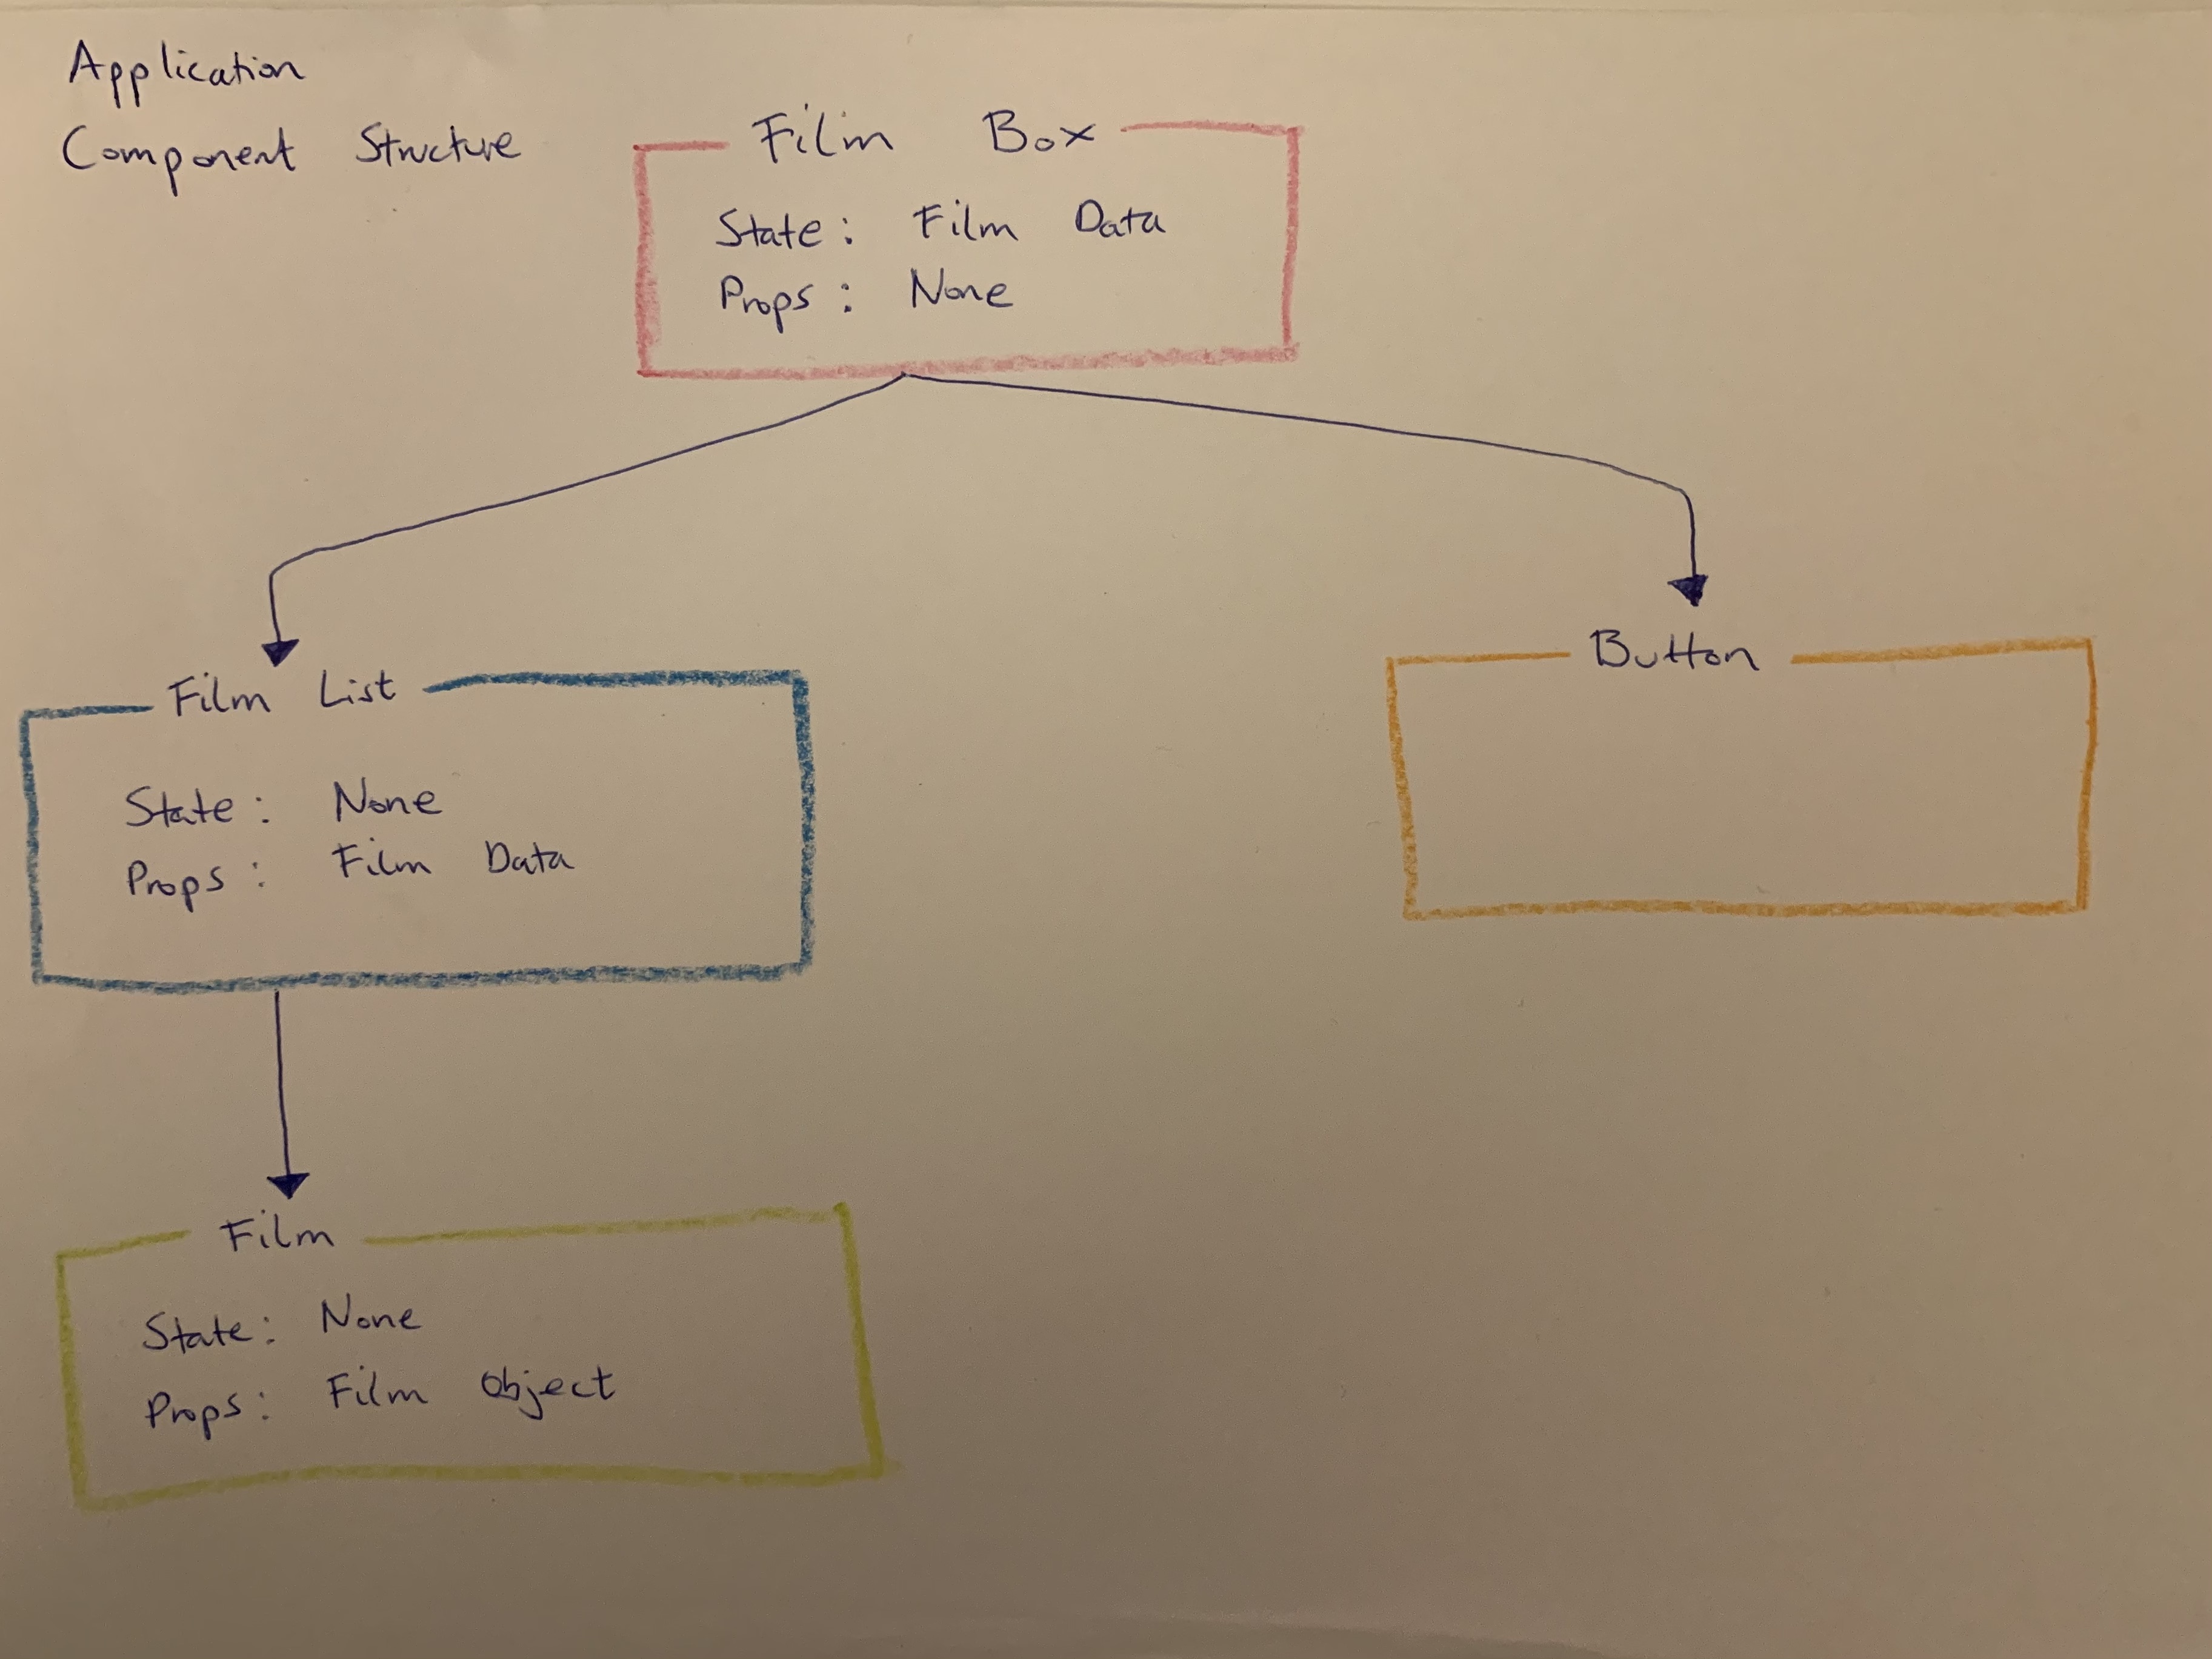 Application
Component Structure
Film Box
State: Film Data
Props: None
Film List
State: None
Props: Film Data
Button
Film
State: None
Props: Film Object